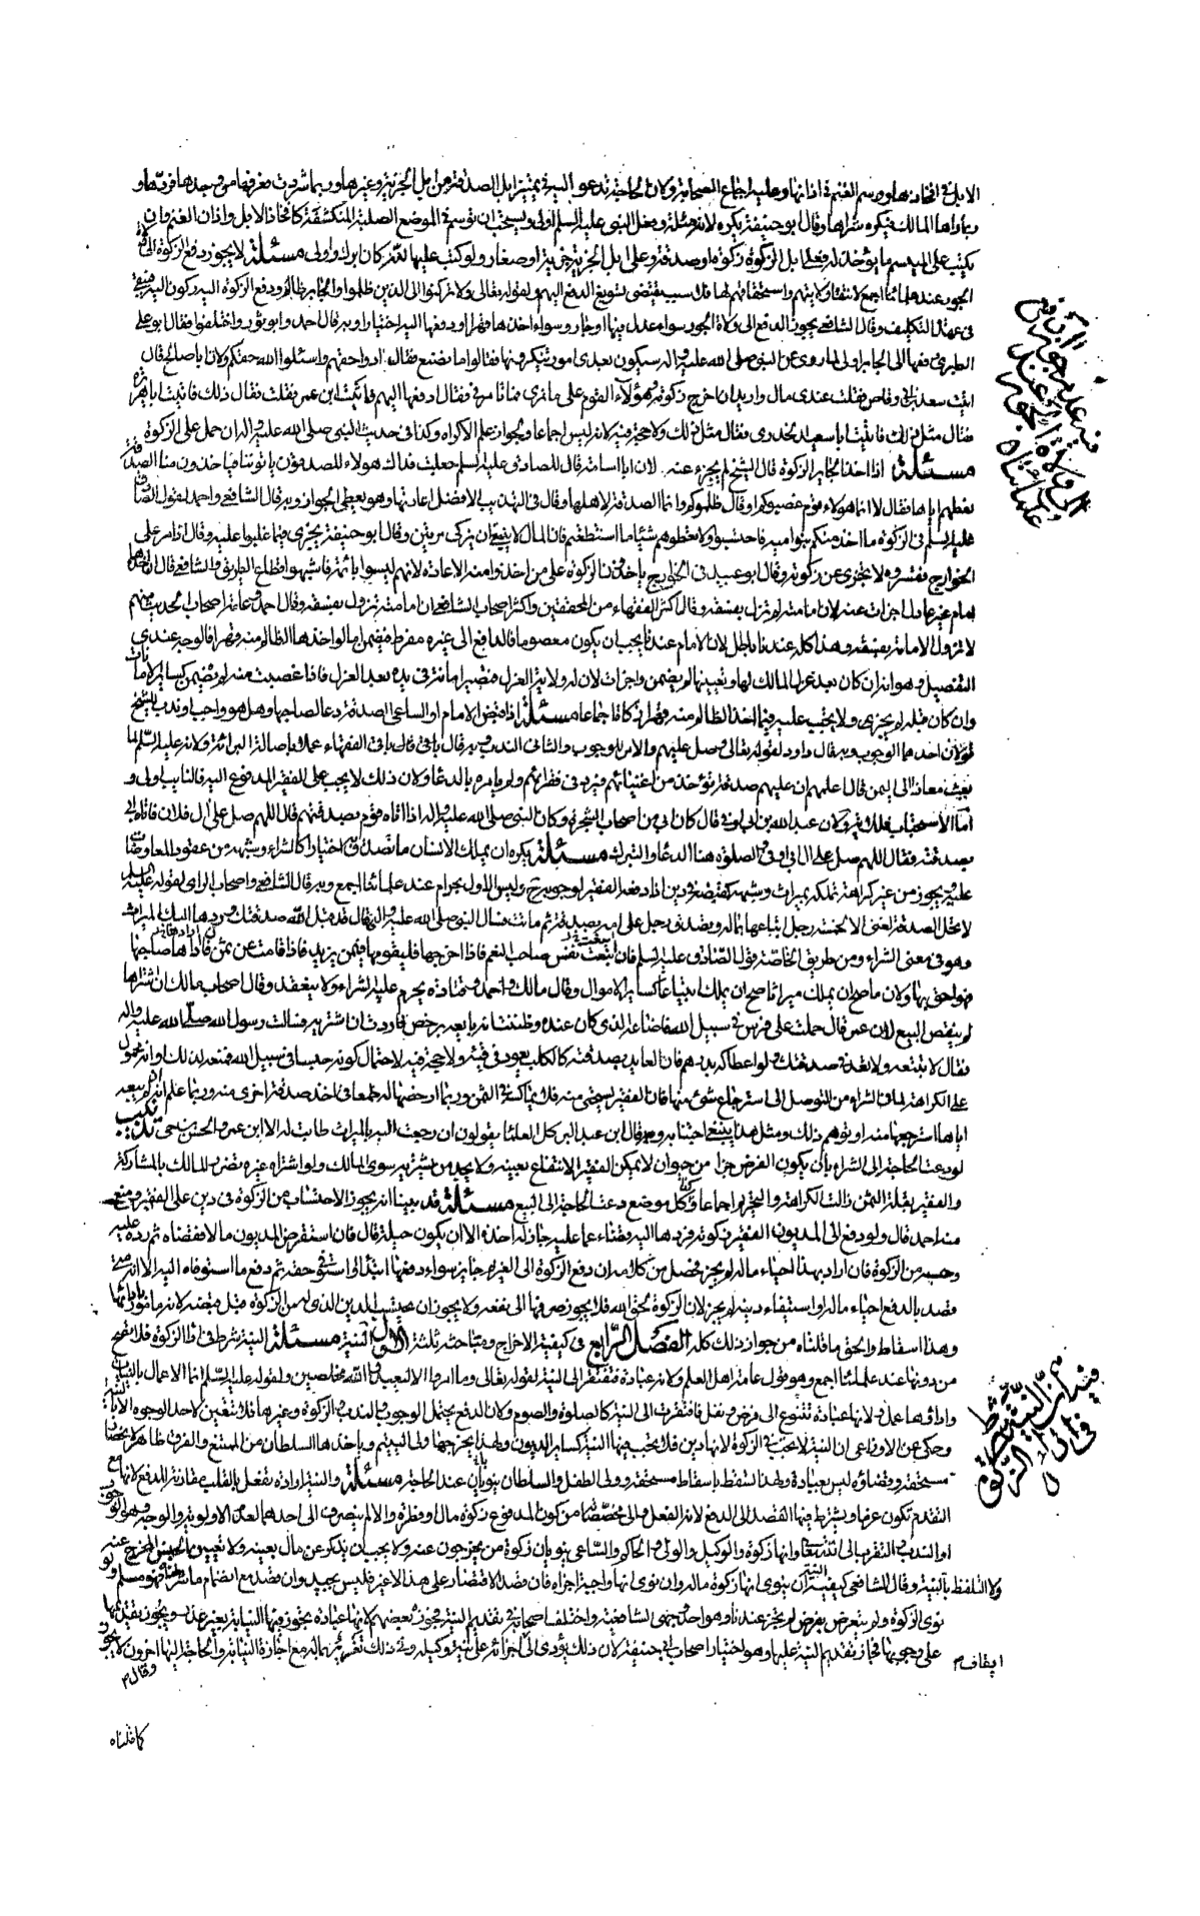 الابل في افخاذها ووسم الغنم في اذانها وعليه اجماع الصحابة ولان الحاجة تدعو اليه في تمييز ابل الصدقة من ابل الجزية وغيرها وربما شردت فعرفها من وجدها فردها و
ربما راها المالك فيكره شراها وقال ابو حنيفة يكره لانه مثلة وفعل النبي عليه السلم اولى ويستحب ان توسم في الموضع الصلبة المنكشفة كافخاذ الابل واذان الغنم وان
يكتب على الميسم ما يؤخذ له فعلى ابل الزكوة زكوة او صدقة وعلى ابل الجزية جزية او صغار ولو كتب عليها لله كان ابرك واولى مسئلة لا يجوز دفع الزكوة الى ولاة
الجور عند علمائنا اجمع لانتفاء ولايتهم واستحقاقهم لها فلا سبب يقتضي تسويغ الدفع اليهم ولقوله تعالى ولا تركنوا الى الذين ظلموا والجائر ظالم ودفع الزكوة اليه ركون اليه فيبقى
في عهدة التكليف وقال الشافعي يجوز الدفع الى ولاة الجور سواء عدل فيها او جار وسواء اخذها قهرا او دفعها اليه اختيارا وبه قال احمد وابو ثور واختلفوا فقال ابو علي
الطبري دفعها الى الجائر اولى لما روي عن النبي صلى الله عليه واله سيكون بعدي امور تنكرونها فقالوا ما نصنع فقال ادوا حقهم واسئلوا الله حقكم ولان ابا صالح قال
اتيت سعد بن ابي وقاص فقلت عندي مال واريد ان اخرج زكوته وهؤلاء القوم على ما ترى فما تأمرني فقال ادفعها اليهم فاتيت ابن عمر فقلت فقال ذلك فاتيت ابا هريرة
فقال مثل ذلك فاتيت ابا سعيد الخدري فقال مثل ذلك ولا حجة فيه لانه ليس اجماعا والجواز علم الاكراه وكذا في حديث النبي صلى الله عليه واله ان حمل على الزكوة
مسئلة اذا اخذ الجائر الزكوة قال الشيخ لم يجزء عنه لان ابا اسامة قال للصادق عليه السلم جعلت فداك هؤلاء المصدقون ياتوننا فياخذون منا الصدقة
نعطيهم اياها فقال لا انما هؤلاء قوم غصبوكم او قال ظلموكم وانما الصدقة لاهلها وقال في التهذيب الافضل اعادتها وهو يعطي الجواز وبه قال الشافعي واحمد لقول الصادق
عليه السلم في الزكوة ما اخذ منكم بنو امية فاحتسبوا ولا تعطوهم شيئا ما استطعتم فان المال لا ينبغي ان يزكى مرتين وقال ابو حنيفة يجزي فيما غلبوا عليه وقال اذا مر على
الخوارج فعشروه لا يجزي عن زكوته وقال ابو عبيد في الخوارج ياخذون الزكوة على من اخذوا منه الاعادة لانهم ليسوا بائمة فاشبهوا قطاع الطريق والشافعي قال ان اخذها
امام غير عادل اجزات عنه لان امامته لم تزل بفسقه وقال اكثر الفقهاء من المحققين واكثر اصحاب الشافعي ان امامته تزول بفسقه وقال احمد وعامة اصحاب الحديث منهم
لا تزول الامامة بفسقه وهذا كله عندنا باطل لان الامام عندنا يجب ان يكون معصوما فالدافع الى غيره مفرط فيضمن اما لو اخذها الظالم منه قهرا فالوجه عندي
التفصيل وهو انه ان كان بعد عزل المالك لها وتعيينها لم يضمن واجزات لان له ولاية العزل فتصير امانة في يده بعد العزل فاذا غصبت منه لم يضمن كسائر الامانات
وان كان قبله لم يجزي ولا يجب عليه فيما اخذ الظالم منه قهرا زكاة اجماعا مسئلة اذا قبض الامام او الساعي الصدقة دعا لصاحبها وهل هو واجب او ندب للشيخ
قولان احدهما الوجوب وبه قال داود لقوله تعالى وصل عليهم والامر للوجوب والثاني الندب وبه قال باقي الفقهاء عملا باصالة البرائة ولانه عليه السلم لما
بعث معاذا الى اليمن قال اعلمهم ان عليهم صدقة تؤخذ من اغنيائهم فترد في فقرائهم ولم يامره بالدعا ولان ذلك لا يجب على الفقير المدفوع اليه فالنايب اولى و
اما الاستحباب فللاية ولان عبد الله بن ابي اوفى قال كان ابي من اصحاب الشجرة وكان النبي صلى الله عليه واله اذا اتاه قوم بصدقتهم قال اللهم صل على ال فلان فاتاه ابي
بصدقته فقال اللهم صل على ال ابي اوفى والصلوة هنا الدعا والتبرك مسئلة يكره ان يملك الانسان ما تصدق به اختيارا كالشراء وشبهه من عقود المعاوضات
عليه ويجوز من غير كراهة تملكه بميراث وشبهه كقبضه في دين اذا دفعه الفقير لوجوبه وليس الاول بحرام عند علمائنا اجمع وبه قال الشافعي واصحاب الراي لقوله عليه السلم
لا تحل الصدقة لغني الا لخمسة رجل ابتاعها بماله وتصدق رجل على امه بصدقة ثم ماتت فسال النبي صلى الله عليه واله قال قد قبل الله صدقتك وردها اليك الميراث
وهو في معنى الشراء ومن طريق الخاصة قول الصادق عليه السلم فان تبعت نفس صاحب الغنم فاذا اخرجها فليقومها فيمن يزيد فاذا قامت على ثمن فاذا ارادها صاحبها
فهو احق بها ولان ما صح ان يملك ميراثا صح ان يملك ابتياعا كسائر الاموال وقال مالك واحمد وقتادة يحرم عليه الشراء ولا ينعقد وقال اصحاب مالك ان اشتراها
لم ينقض البيع لان عمر قال حملت على فرس في سبيل الله فاضاعه الذي كان عنده وظننت انه بايعه برخص فاردت ان اشتريه فسالت رسول الله صلى الله عليه واله
فقال لا تبتعه ولا تعد في صدقتك ولو اعطاكه بدرهم فان العايد بصدقته كالكلب يعود في قيئه ولا حجة فيه لاحتمال كونه حبسا في سبيل الله فمنعه لذلك او انه محمول
على الكراهة لما في الشراء من التوصل الى استرجاع شئ منها فان الفقير يستحيي منه فلا يماكسه في الثمن وربما ارخصها له طمعا في اخذ صدقة اخرى منه وربما علم انه ان لم يبعه
اياها استرجعها منه او توهم ذلك ومثل هذا ينبغي اجتنابه وقال ابن عبد البر كل العلماء يقولون ان رجعت اليه بالميراث طابت له الا ابن عمر والحسن بن حي تذنيب
لو دعت الحاجة الى الشراء بان يكون الفرض جزءا من حيوان لا يمكن الفقير الانتفاع بعينه ولا يجد من يشتريه سوى المالك ولو اشتراه غيره تضرر المالك بالمشاركة
والفقير بقلة الثمن زالت الكراهة والتحريم اجماعا وكذا كل موضع دعت الحاجة الى البيع مسئلة قد بينا انه يجوز الاحتساب من الزكوة في دين على الفقير ومنع
منه احمد قال ولو دفع الى المديون الفقير زكوته فردها اليه قضاء عما عليه جاز له اخذه الا ان يكون حيلة قال فان استقرض المديون مالا فقضاه ثم رده عليه
وحسبه من الزكوة فان اراد بهذا احياء ماله لم يجز فحصل من كلامه ان دفع الزكوة الى الغريم جايز سواء دفعها ابتداء او استوفى حقه ثم دفع ما استوفاه اليه الا انه متى
قصد بالدفع احياء ماله او استيفاء دينه لم يجز لان الزكوة لحق الله فلا يجوز صرفها الى نفعه ولا يجوز ان يحتسب الدين الذي له من الزكوة قبل قبضه لانه مامور بادائها
وهذا اسقاط والحق ما قلناه من جواز ذلك كله الفصل الرابع في كيفية الاخراج ومباحثه ثلثة الاول النية مسئلة النية شرط في اداء الزكوة فلا تصح
من دونها عند علمائنا اجمع وهو قول عامة اهل العلم ولانه عبادة فتفتقر الى النية لقوله تعالى وما امروا الا ليعبدوا الله مخلصين ولقوله عليه السلم انما الاعمال بالنيات
واداؤها عمل ولانها عبادة تتنوع الى فرض ونفل فافتقرت الى النية كالصلوة والصوم ولان الدفع يحتمل الوجوب والندب والزكوة وغيرها فلا تتعين لاحد الوجوه الا بالنية
وحكي عن الاوزاعي ان النية لا تجب في الزكوة لانها دين فلا تجب فيها النية كسائر الديون ولهذا يخرجها ولي اليتيم وياخذها السلطان من الممتنع والفرق ظاهر لانحصار
مستحقه وقضاؤه ليس بعبادة ولهذا تسقط باسقاط مستحقه وولي الطفل والسلطان ينوبان عند الحاجة مسئلة والنية ارادة تفعل بالقلب مقارنة للدفع لانها مع
التقدم تكون عزما ويشترط فيها القصد الى الدفع لانه الفعل والى مخصصاته من كون المدفوع زكوة مال او فطرة والا لم ينصرف الى احدهما لعدم الاولوية والوجه وهو الوجوب
او الندب والتقرب الى الله تعالى وانها زكوة والوكيل والولي والحاكم والساعي ينوبان زكوة من يخرجون عنه ولا يجب ان يذكر عن مال بعينه ولا تعيين الجنس المخرج عنه
ولا التلفظ بالنية وقال الشافعي كيفية النية ان ينوي انها زكوة ماله وان نوى انها واجبة اجزاه فان قصد الاقتصار على هذا الاخير فليس بجيد وان قصد مع انضمام ما شرطناه فهو مسلم ولو
نوى الزكوة ولم يتعرض بفرض لم يجز عندنا وهو احد وجهي الشافعية واختلف اصحابه في تقديم النية فجوزه بعضهم لانها عبادة يجوز فيها النيابة بغير عذر ويجوز تقديمها
على وجوبها فجاز تقديم النية عليها وهو اختيار اصحاب ابي حنيفة لان ذلك يؤدي الى اجزائه على نية وكيله وفي ذلك تغرير بماله مع اجازة النيابة والحاجة اليها اخرون لا يجوز
كما قلناه
فيه عدم جواز دفع الزكوة
الى ولاة الجور عند
علمائنا
فيه ان النية شرط
في اداء الزكوة